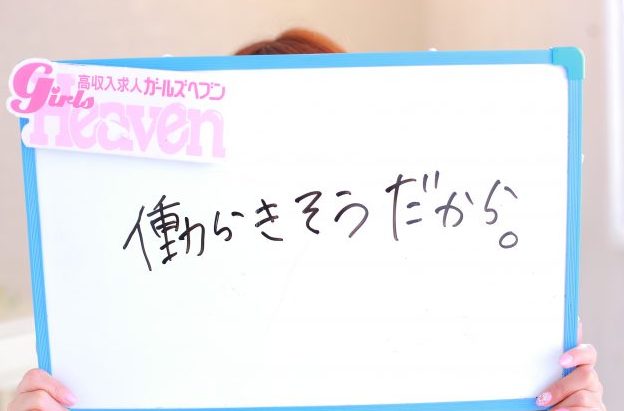 高収入求人ガールズヘブン
Girls
Heaven
働らきそうだから。